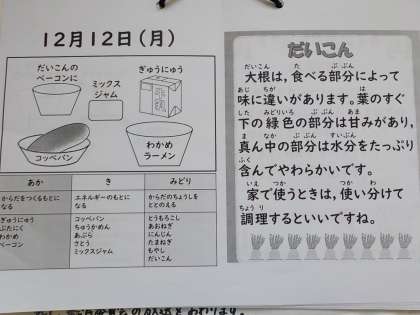 12月12日(月)
だいこんの
ベーコンに
ミックス
ジャム
ぎゅうにゅう
コッペパン
わかめ
ラーメン
あか
き
みどり
からだをつくるもとに
なる
エネルギーのもとに
なる
からだのちょうしを
ととのえる
ぎゅうにゅう
ぶたにく
わかめ
ベーコン
コッペパン
ちゅうかめん
あぶら
さとう
ミックスジャム
とうもろこし
あおねぎ
にんじん
たまねぎ
もやし
だいこん
だいこん
大根は,食べる部分によって
味に違いがあります。葉のすぐ
下の緑色の部分は甘みがあり,
真ん中の部分は水分をたっぷり
含んでやわらかいです。
家で使うときは,使い分けて
調理するといいですね。